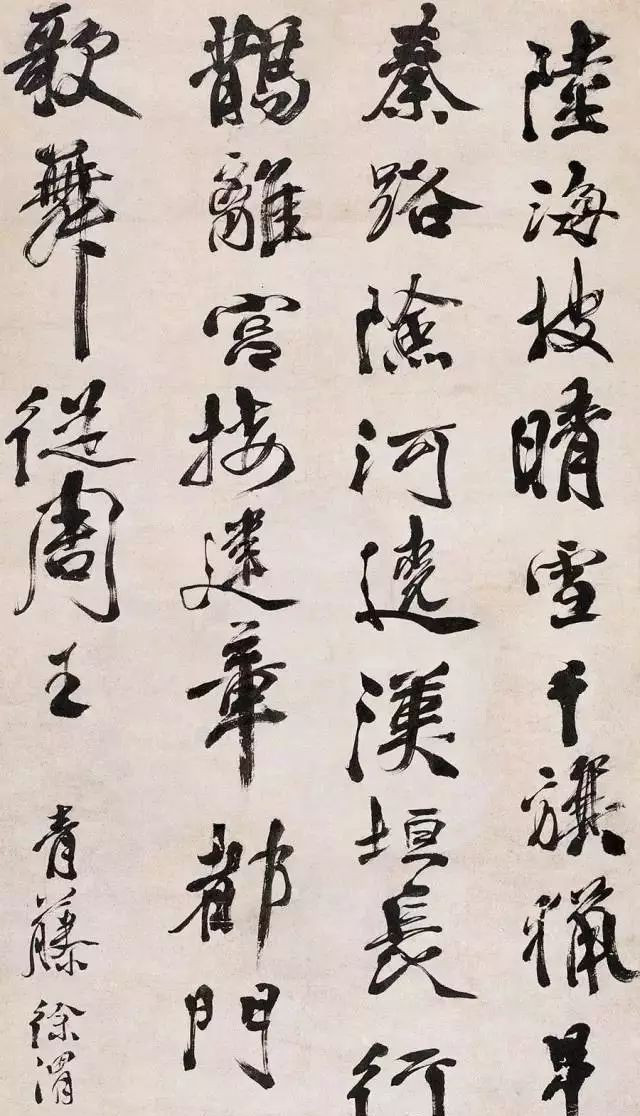 陸海披晴雪千旗獵早
秦路險河遶漢垣長行
鵲離宮接章都門
歌舞從周王 青藤徐渭